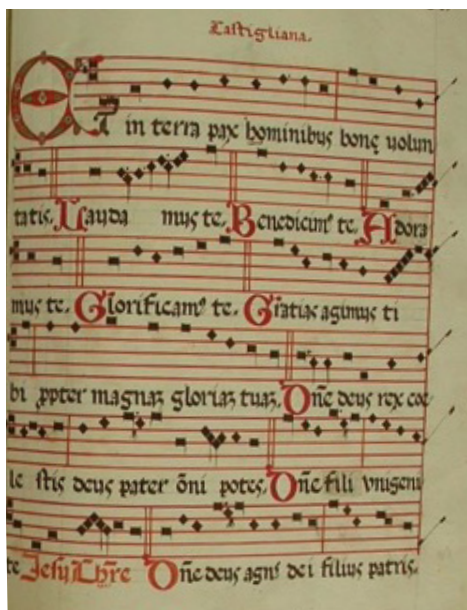 Castigliana.
Et in terra pax hominibus bone uolun
tatis. Lauda mus te. Benedicim⁹ te. Adora
mus te. Glorificam⁹ te. Gratias agimus ti
bi ꝓpter magnaꝫ gloriaꝫ tuaꝫ. Dñe deus rex coe
le stis deus pater õni potẽs. Dñe fili vnigeni
te Jesu Chr̃e Dñe deus agn⁹ dei filius patris.